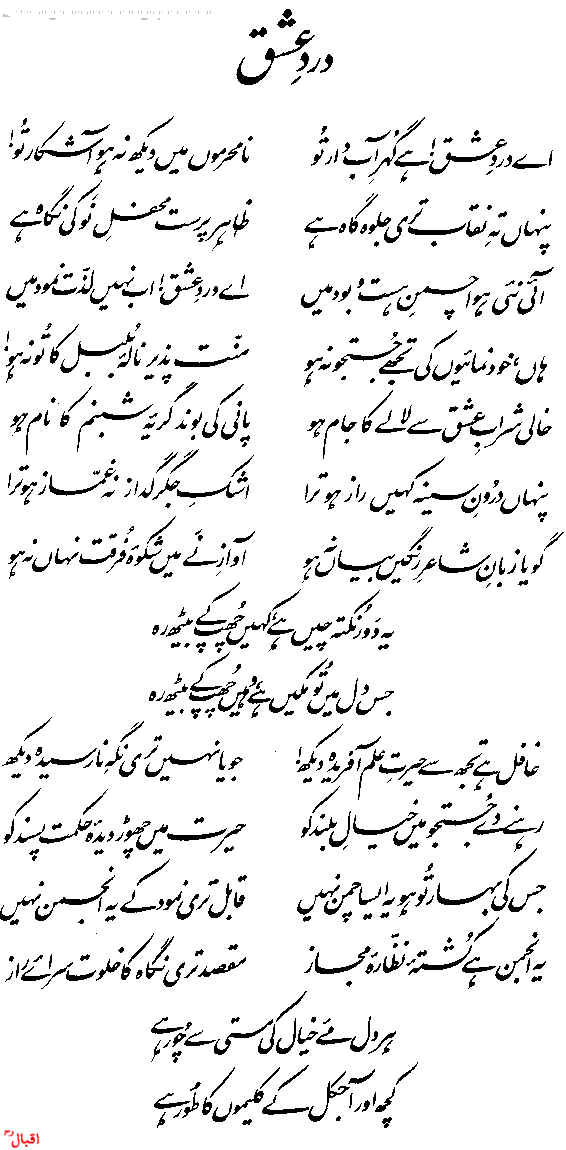 دردِ عشق
اے دردِ عشق! ہے گُہرِ آب دار تُو نامحرموں میں دیکھ نہ ہو آشکار تُو!
پنہاں تہِ نقاب تری جلوہ گاہ ہے ظاہر پرست محفلِ نَو کی نگاہ ہے
آئی نئی ہوا چمنِ ہست و بود میں اے دردِ عشق! اب نہیں لذّت نمود میں
ہاں، خود نمائیوں کی تجھے جُستجو نہ ہو منّت پذیر نالۂ بُلبل کا تُو نہ ہو!
خالی شرابِ عشق سے لالے کا جام ہو پانی کی بوند گریۂ شبنم کا نام ہو
پنہاں درُونِ سینہ کہیں راز ہو ترا اشکِ جگر گداز نہ غمّاز ہو ترا
گویا زبانِ شاعرِ رنگیں بیاں نہ ہو آوازِ نَے میں شکوۂ فُرقت نہاں نہ ہو
یہ دَور نُکتہ چیں ہے، کہیں چھُپ کے بیٹھ رہ
جس دل میں تُو مکیں ہے، وہیں چھُپ کے بیٹھ رہ
غافل ہے تجھ سے حیرتِ علم آفریدہ دیکھ! جویا نہیں تری نگہِ نارسیدہ دیکھ
رہنے دے جُستجو میں خیالِ بلند کو حیرت میں چھوڑ دیدۂ حکمت پسند کو
جس کی بہار تُو ہو یہ ایسا چمن نہیں قابل تری نمود کے یہ انجمن نہیں
یہ انجمن ہے کُشتۂ نظّارۂ مجاز مقصد تری نگاہ کا خلوت سرائے راز
ہر دل مئے خیال کی مستی سے چُور ہے
کچھ اور آجکل کے کلیموں کا طُور ہے
اقبالؒ